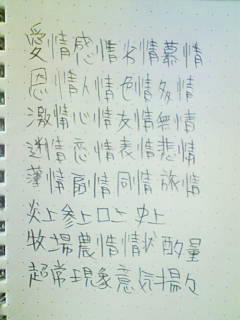 愛情感情火情慕情
恩情人情色情多情
激情心情友情無情
迷情恋情表情悲情
薄情扇情同情旅情
炎上参上口上史上
牧場農情情状酌量
超常現象意気揚々